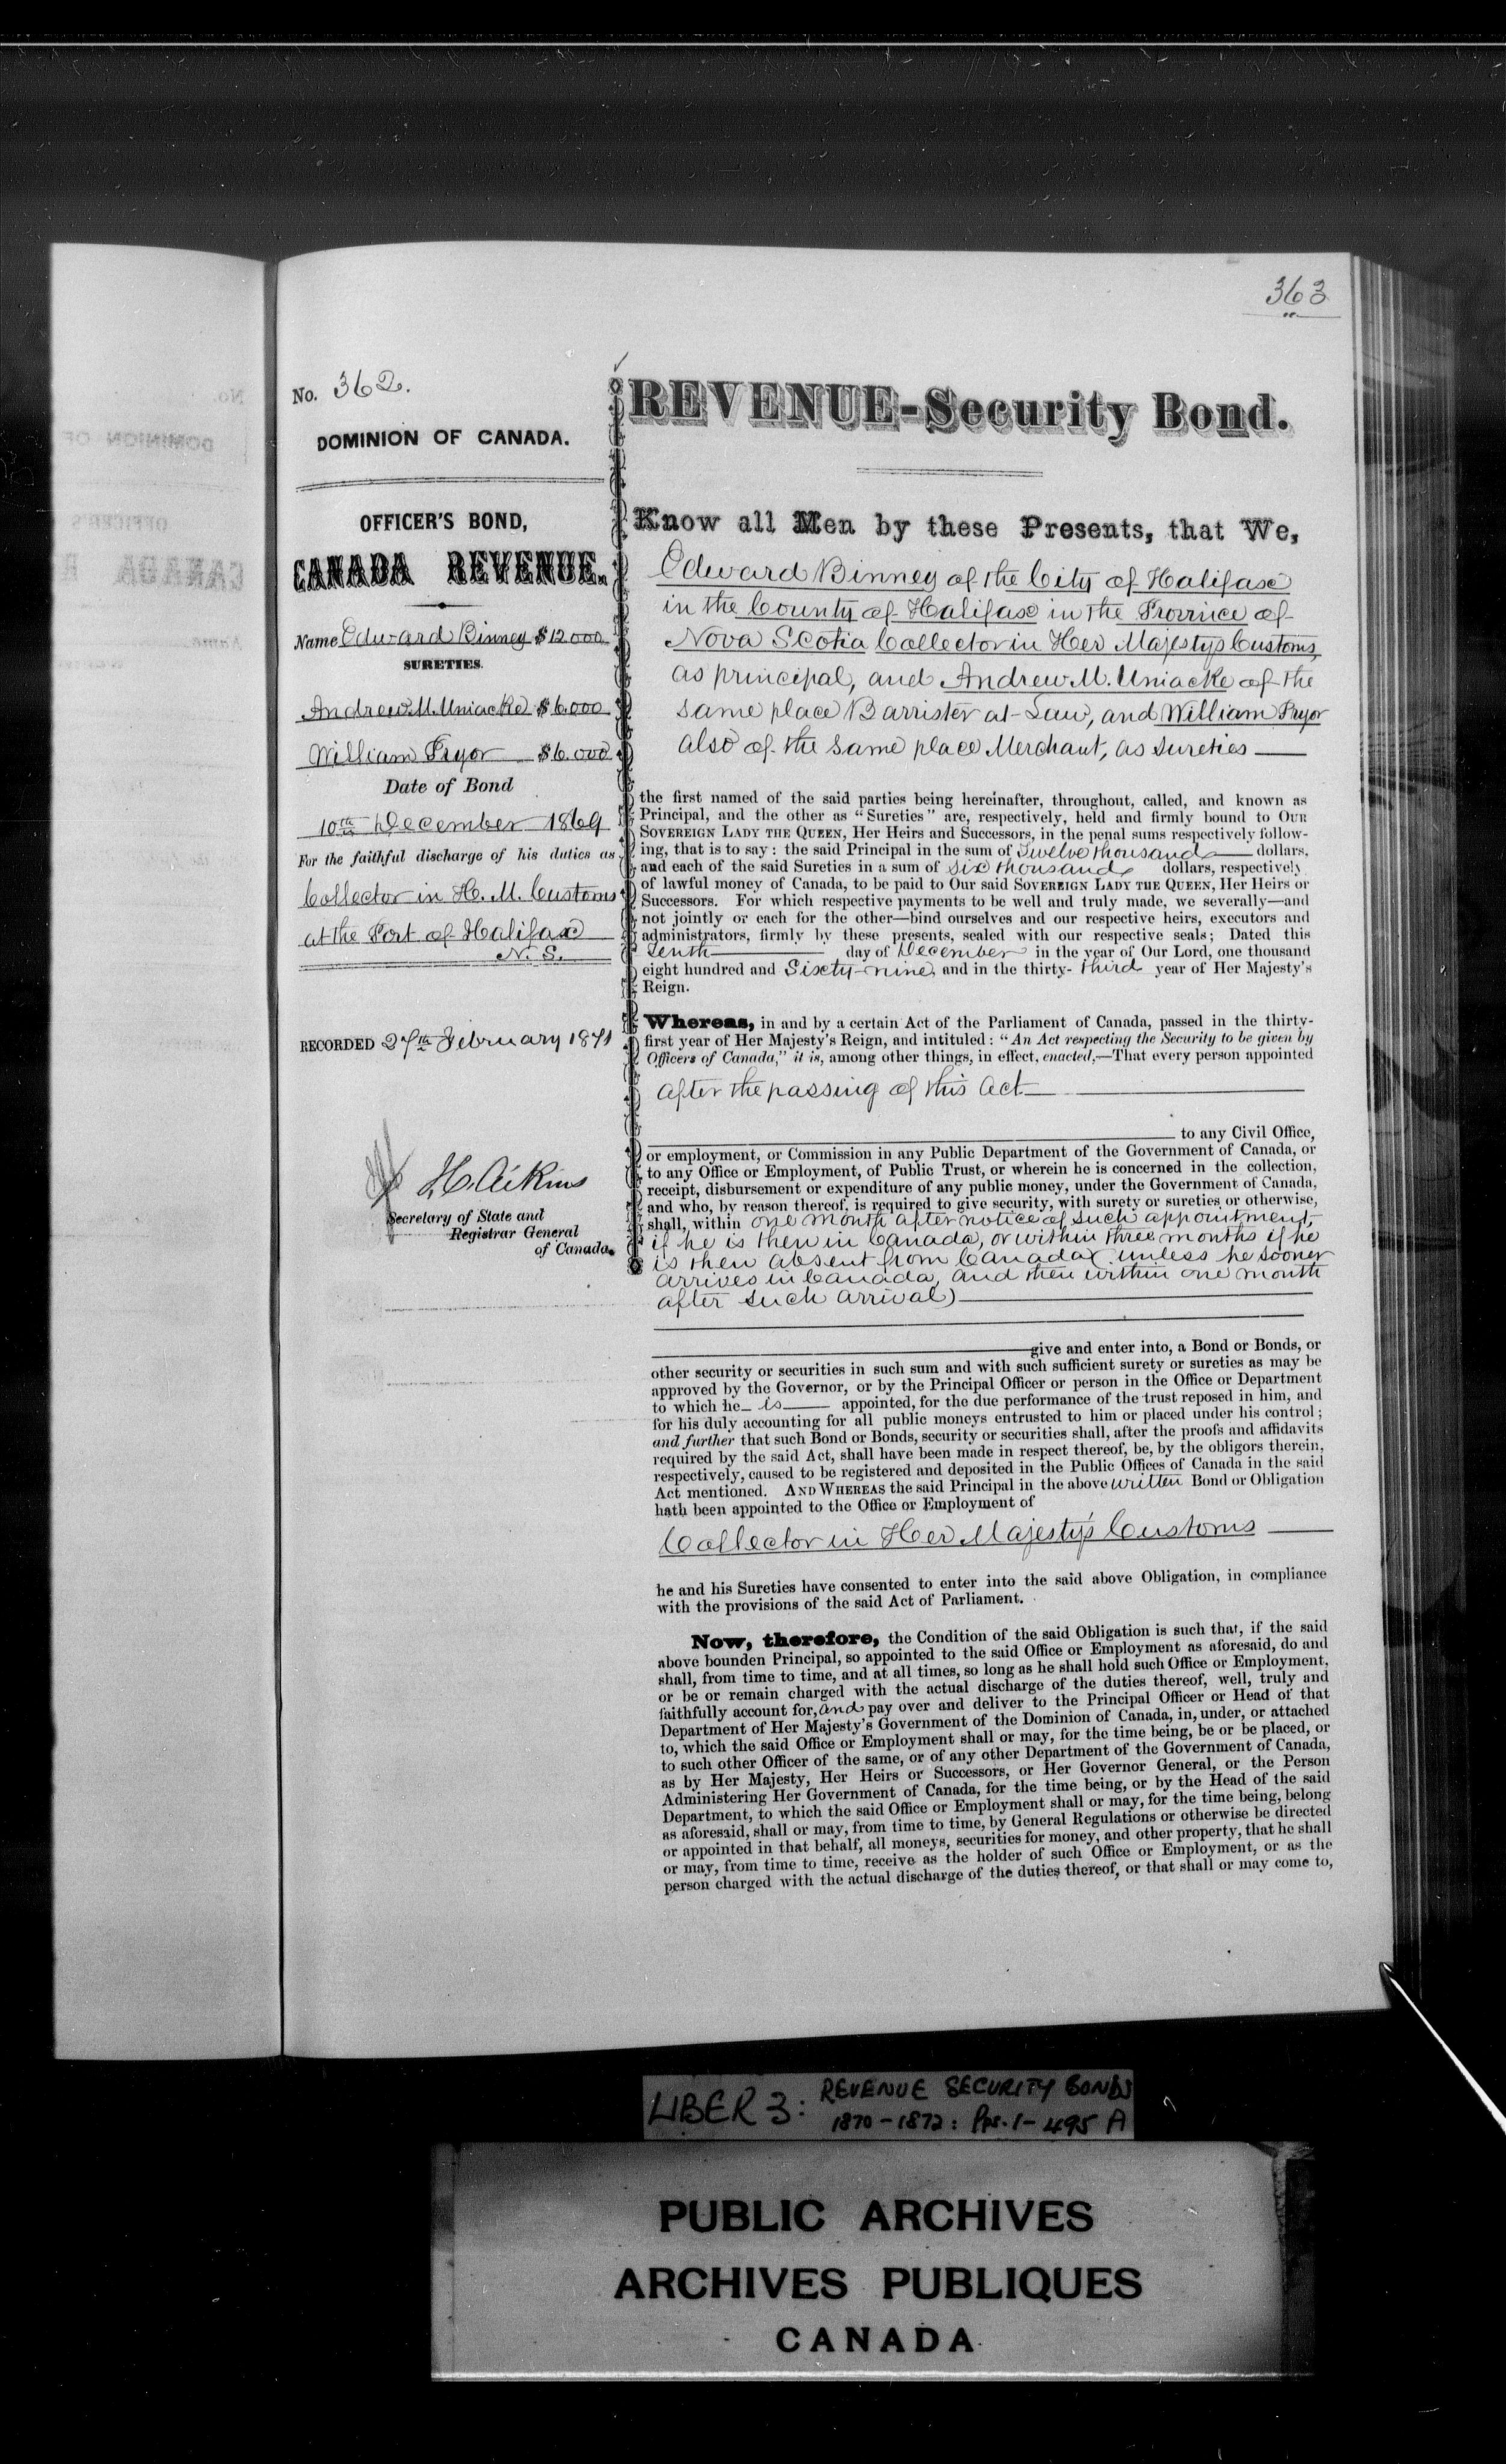 363
No. 362.
DOMINION OF CANADA.
OFFICER'S BOND,
CANADA REVENUE.
Name Edward Binney $12.000
SURETIES.
Andrew M. Uniacke $6.000
William Pryor $6.000
Date of Bond
10th December 1869
For the faithful discharge of his duties as
Collector in H. M. Customs
at the Port of Halifax
N. S.
RECORDED 27th February 1871
Aikins
Secretary of State and
Registrar General
of Canada.
REVENUE-Security Bond.
Know all Men by these Presents, that We,
Edward Binney of the City of Halifax
in the County of Halifax in the Province of
Nova Scotia Collector in Her Majestys Customs
as principal, and Andrew M. Uniacke of the
same place Barrister at Law, and William Pryor
also of the same place Merchant, as sureties
the first named of the said parties being hereinafter, throughout, called, and known as
Principal, and the other as "Sureties" are, respectively, held and firmly bound to OUR
SOVEREIGN LADY THE QUEEN, Her Heirs and Successors, in the penal sums respectively follow-
ing, that is to say: the said Principal in the sum of Twelve thousand dollars,
and each of the said Sureties in a sum of six thousand dollars, respectively
of lawful money of Canada, to be paid to Our said SOVEREIGN LADY THE QUEEN, Her Heirs or
Successors. For which respective payments to be well and truly made, we severally—and
not jointly or each for the other—bind ourselves and our respective heirs, executors and
administrators, firmly by these presents, sealed with our respective seals; Dated this
Tenth day of December in the year of Our Lord, one thousand
eight hundred and Sixty-nine, and in the thirty- third year of Her Majesty's
Reign.
Whereas, in and by a certain Act of the Parliament of Canada, passed in the thirty-
first year of Her Majesty's Reign, and intituled: "An Act respecting the Security to be given by
Officers of Canada," it is, among other things, in effect, enacted,—That every person appointed
after the passing of this Act
to any Civil Office,
or employment, or Commission in any Public Department of the Government of Canada, or
to any Office or Employment, of Public Trust, or wherein he is concerned in the collection,
receipt, disbursement or expenditure of any public money, under the Government of Canada,
and who, by reason thereof, is required to give security, with surety or sureties or otherwise,
shall, within one month after notice of such appointment,
if he is then in Canada, or within three months if he
is then absent from Canada (unless he sooner
arrives in Canada, and then within one month
after such arrival)
give and enter into, a Bond or Bonds, or
other security or securities in such sum and with such sufficient surety or sureties as may be
approved by the Governor, or by the Principal Officer or person in the Office or Department
to which he is appointed, for the due performance of the trust reposed in him, and
for his duly accounting for all public moneys entrusted to him or placed under his control;
and further that such Bond or Bonds, security or securities shall, after the proofs and affidavits
required by the said Act, shall have been made in respect thereof, be, by the obligors therein,
respectively, caused to be registered and deposited in the Public Offices of Canada in the said
Act mentioned. AND WHEREAS the said Principal in the above written Bond or Obligation
hath been appointed to the Office or Employment of
Collector in Her Majesty's Customs
he and his Sureties have consented to enter into the said above Obligation, in compliance
with the provisions of the said Act of Parliament.
Now, therefore, the Condition of the said Obligation is such that, if the said
above bounden Principal, so appointed to the said Office or Employment as aforesaid, do and
shall, from time to time, and at all times, so long as he shall hold such Office or Employment,
or be or remain charged with the actual discharge of the duties thereof, well, truly and
faithfully account for, and pay over and deliver to the Principal Officer or Head of that
Department of Her Majesty's Government of the Dominion of Canada, in, under, or attached
to, which the said Office or Employment shall or may, for the time being, be or be placed, or
to such other Officer of the same, or of any other Department of the Government of Canada,
as by Her Majesty, Her Heirs or Successors, or Her Governor General, or the Person
Administering Her Government of Canada, for the time being, or by the Head of the said
Department, to which the said Office or Employment shall or may, for the time being, belong
as aforesaid, shall or may, from time to time, by General Regulations or otherwise be directed
or appointed in that behalf, all moneys, securities for money, and other property, that he shall
or may, from time to time, receive as the holder of such Office or Employment, or as the
person charged with the actual discharge of the duties thereof, or that shall or may come to,
LIBER 3: REVENUE SECURITY BONDS
1870-1872: Pps. 1-495 A
PUBLIC ARCHIVES
ARCHIVES PUBLIQUES
CANADA